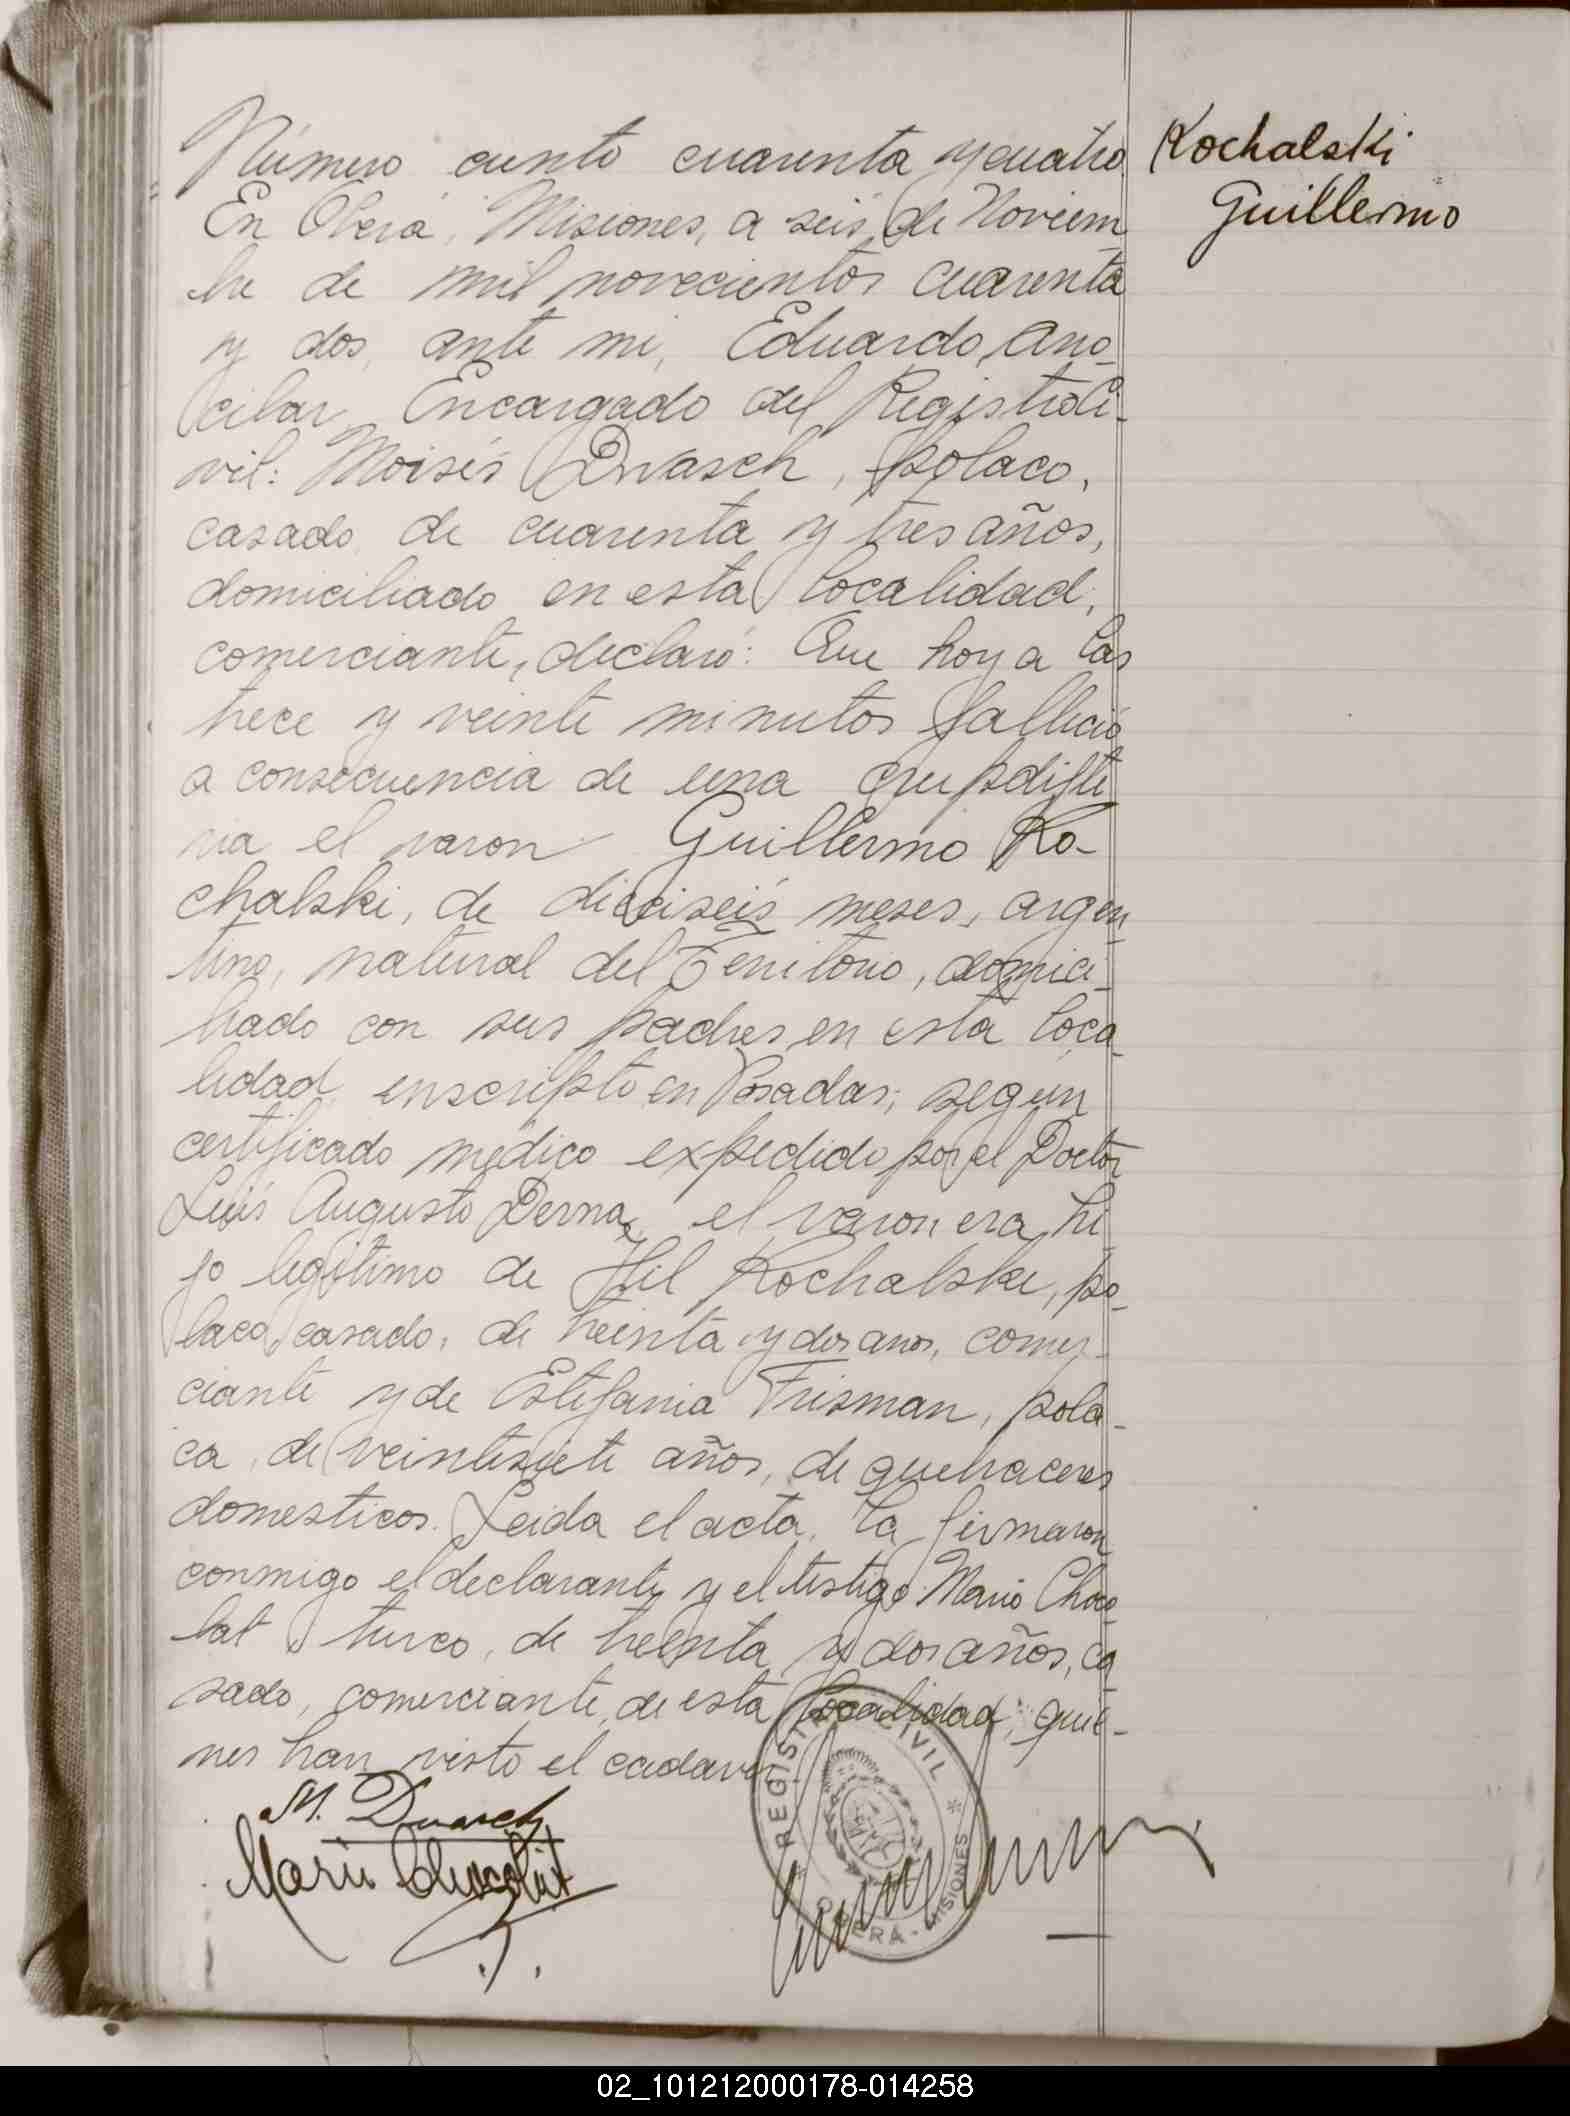 Número ciento cuarenta y cuatro
Kochalski
Guillermo
En Oberá, Misiones, a seis de Noviem
bre de mil novecientos cuarenta
y dos, ante mi, Eduardo Ano
cibar, Encargado del Registro Ci-
vil: Moisés Dwasch, polaco,
casado, de cuarenta y tres años,
domiciliado en esta localidad,
comerciante, declaró: Que hoy a las
trece y veinte minutos falleció
a consecuencia de una crupdifte
ria el varon Guillermo Ko-
chalski, de dieciseis meses, argen
tino, natural del Territorio, domici-
liado con sus padres en esta loca-
lidad, inscripto en Posadas; según
certificado médico expedido por el Doctor
Luis Augusto Derna, el varon era hi
jo legítimo de Hil Kochalski, po-
laco, casado, de treinta y dos años, comer-
ciante y de Estefania Frisman, pola-
ca, de veintisiete años, de quehaceres
domesticos. Leida el acta, la firmaron
conmigo el declarante y el testigo: Mario Choco-
lat, turco, de treinta y dos años, ca
sado, comerciante, de esta localidad; quie-
nes han visto el cadaver.
M. Dwasch
Mario Chocolat
REGISTRO CIVIL * OBERÁ - MISIONES *
02_101212000178-014258